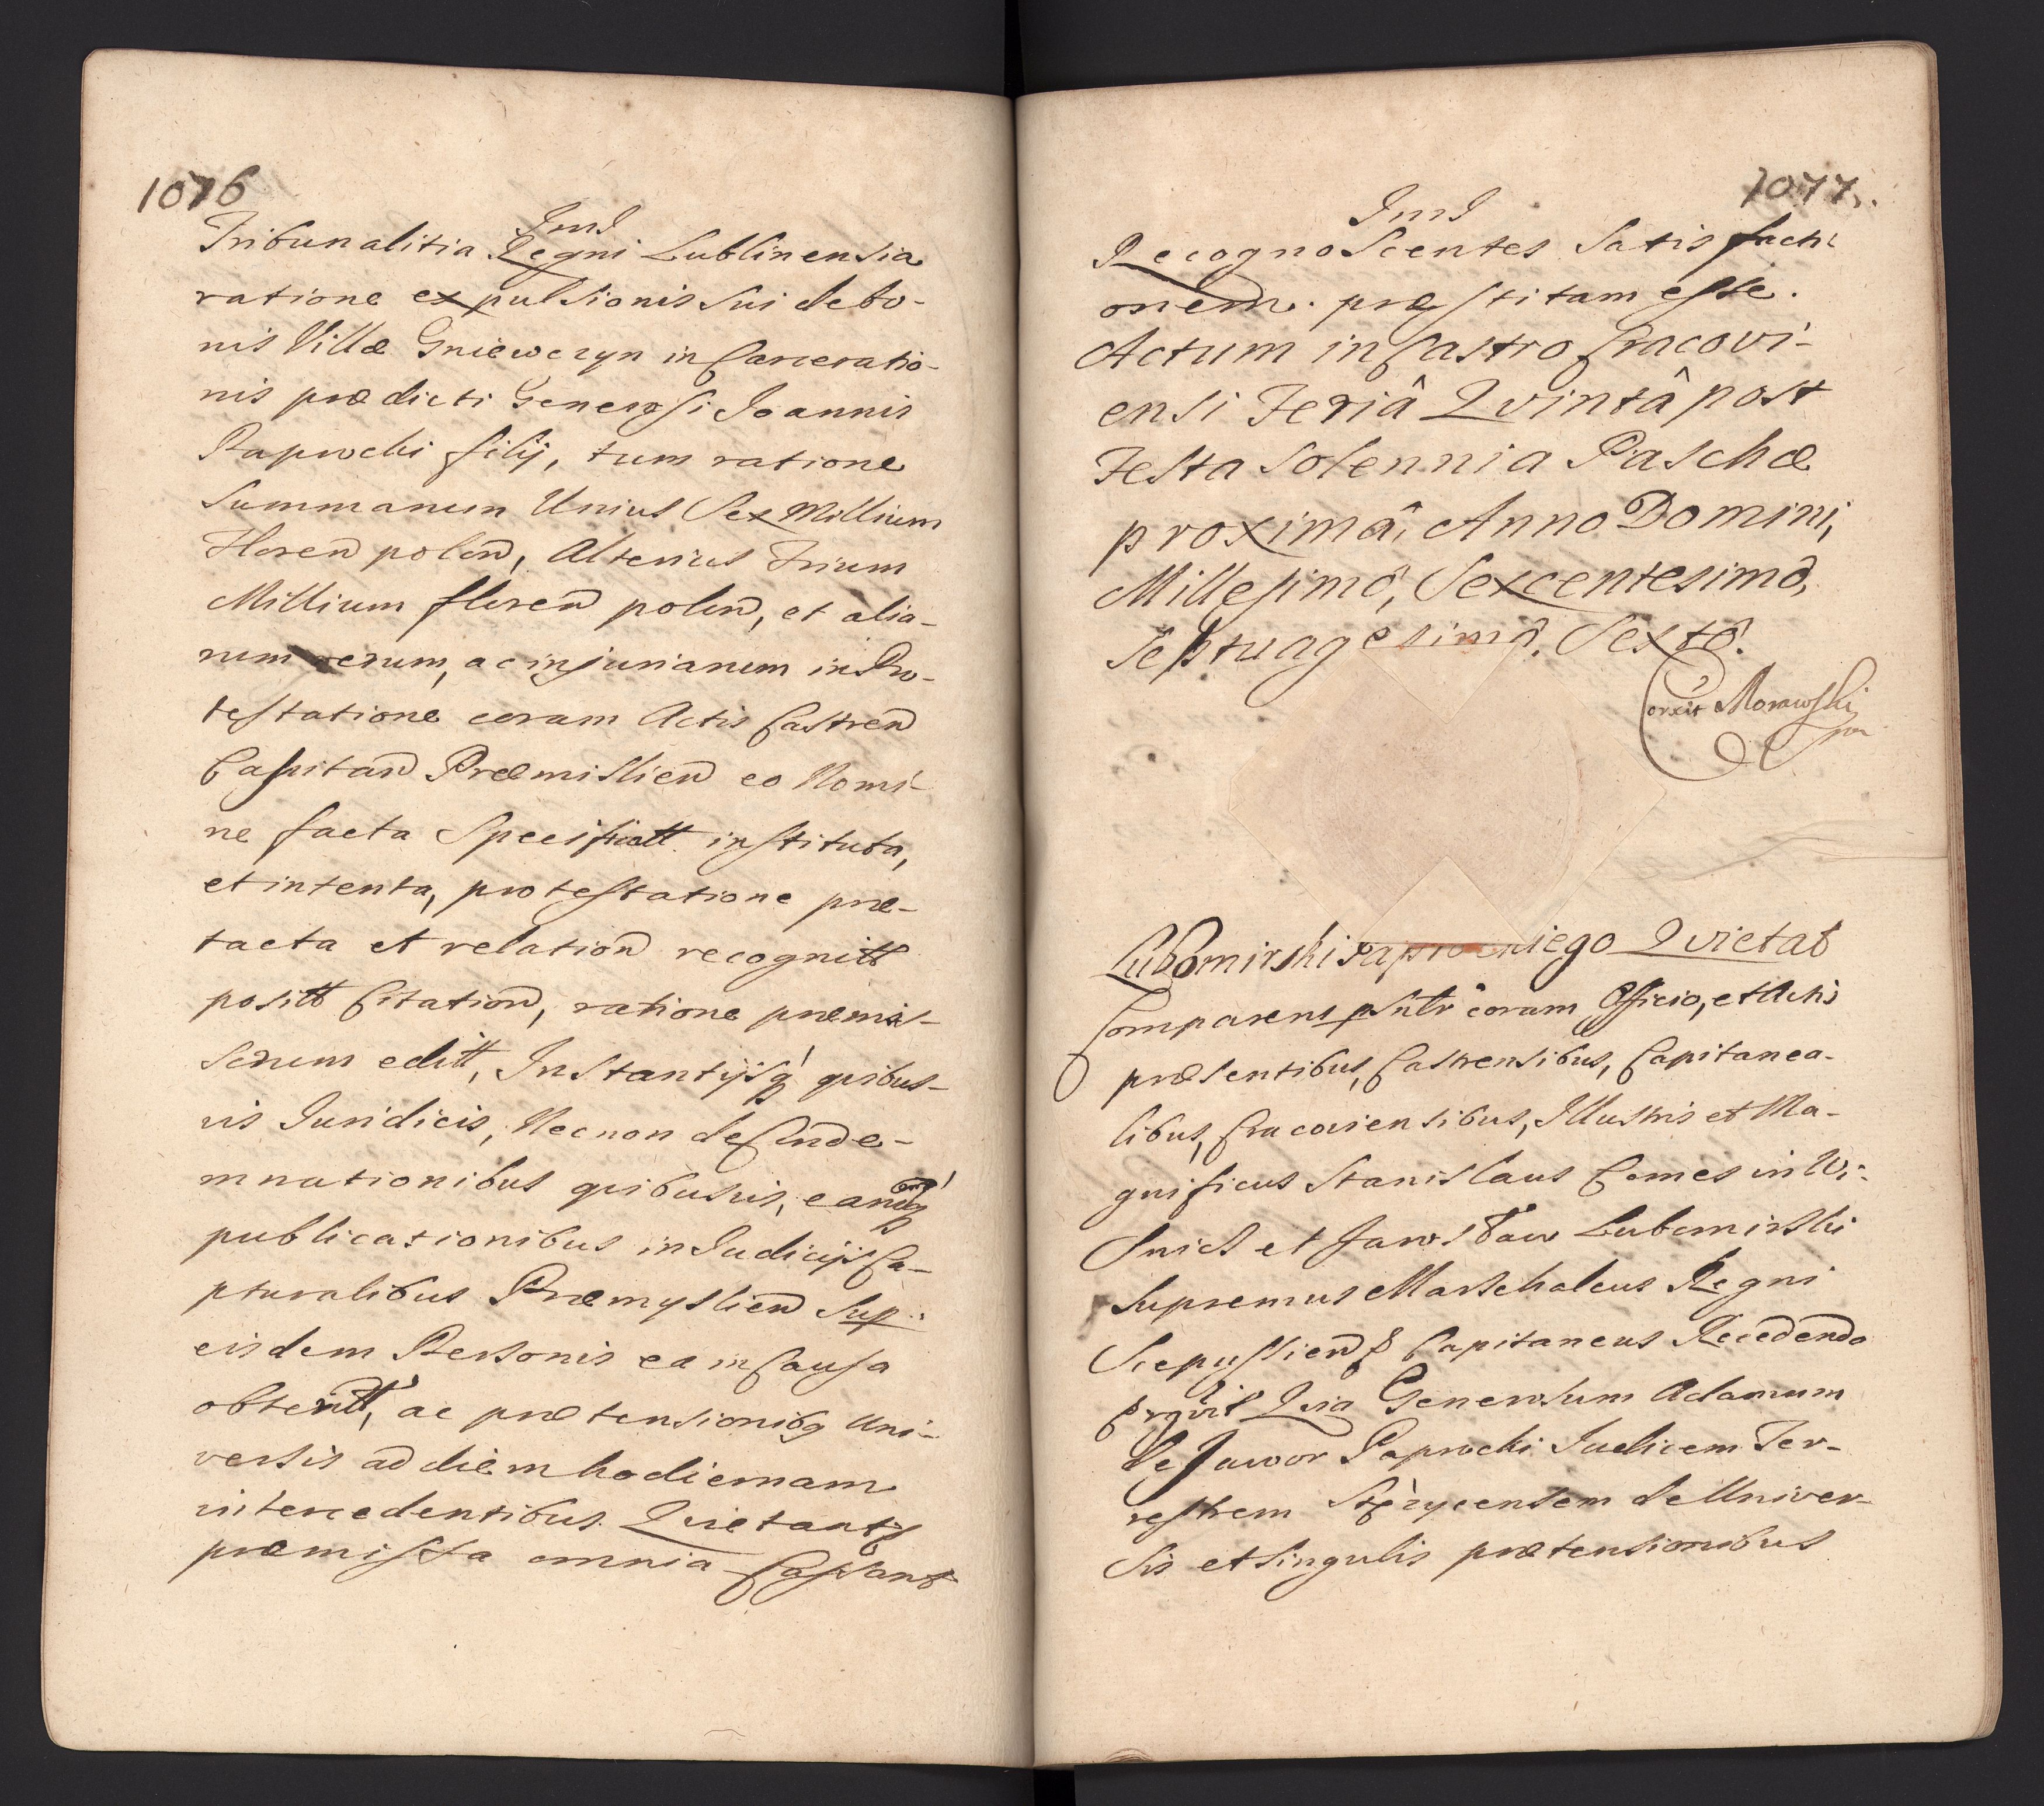 1076
Jmł
Tribunalitia Regni Lublinensia
ratione expulsionis sui de bo-
nis Villæ Gniewczyn inCarceratio-
nis prædicti Generosi Joannis
Paprocki filij, tum ratione
Summarum Unius Sex Millium
Floren polon, Alterius Trium
Millium floren polon, et alia-
rum rerum, ac injuriarum in Pro-
testatione coram Actis Castren
Capitan Præmislien eo Nomi-
ne facta Specificatt instituta,
et intenta, protestatione præ-
tacta et relation recognitt
positt Citation, ratione præmis-
sorum editt, Instantijsq quibus-
vis Juridicis, Necnon deConde-
mnationibus quibusvis, earumq
publicationibus in Judicijs Ca-
pturalibus Præmyslien Sup
eisdem Personis ea in Causa
obtentt, ac prætensionibq Uni-
versis ad diem hodiernam
intercedentibus. Quietants
præmissa omnia Cassant
1077.
Jmł
RecognoScentes Satisfacti
onem. præstitam esse.
Actum in Castro Cracovi-
ensi Feriâ Qvintâ post
Festa Solennia Paschæ
proximâ, Anno Domini,
Millesimô, Sexcentesimô,
Septuagesimô, Sextô.
Corxit Morawski
Lubomirski Paprockiego Qvietat
Comparens psntr coram Officio, et Actis
præsentibus, Castrensibus, Capitanea-
libus, Cracoviensibus, Illustris et Ma-
gnificus Stanislaus Comes in Wi-
Snicz et Jarosław Lubomirski
Supremus Marschalcus Regni
Scepuslien & Capitaneus Recedendo
Qvia Generosum Adamum
de Jawor Paprocki Judicem Ter-
restrem Stęzycensem de Univer-
sis et singulis prætensionibus